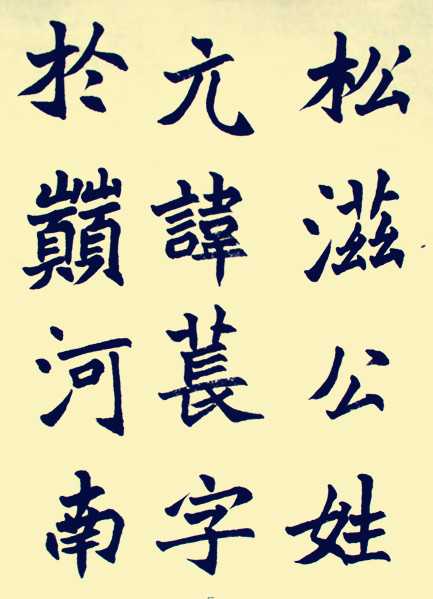 松滋公姓
元諱萇字
於巔河南